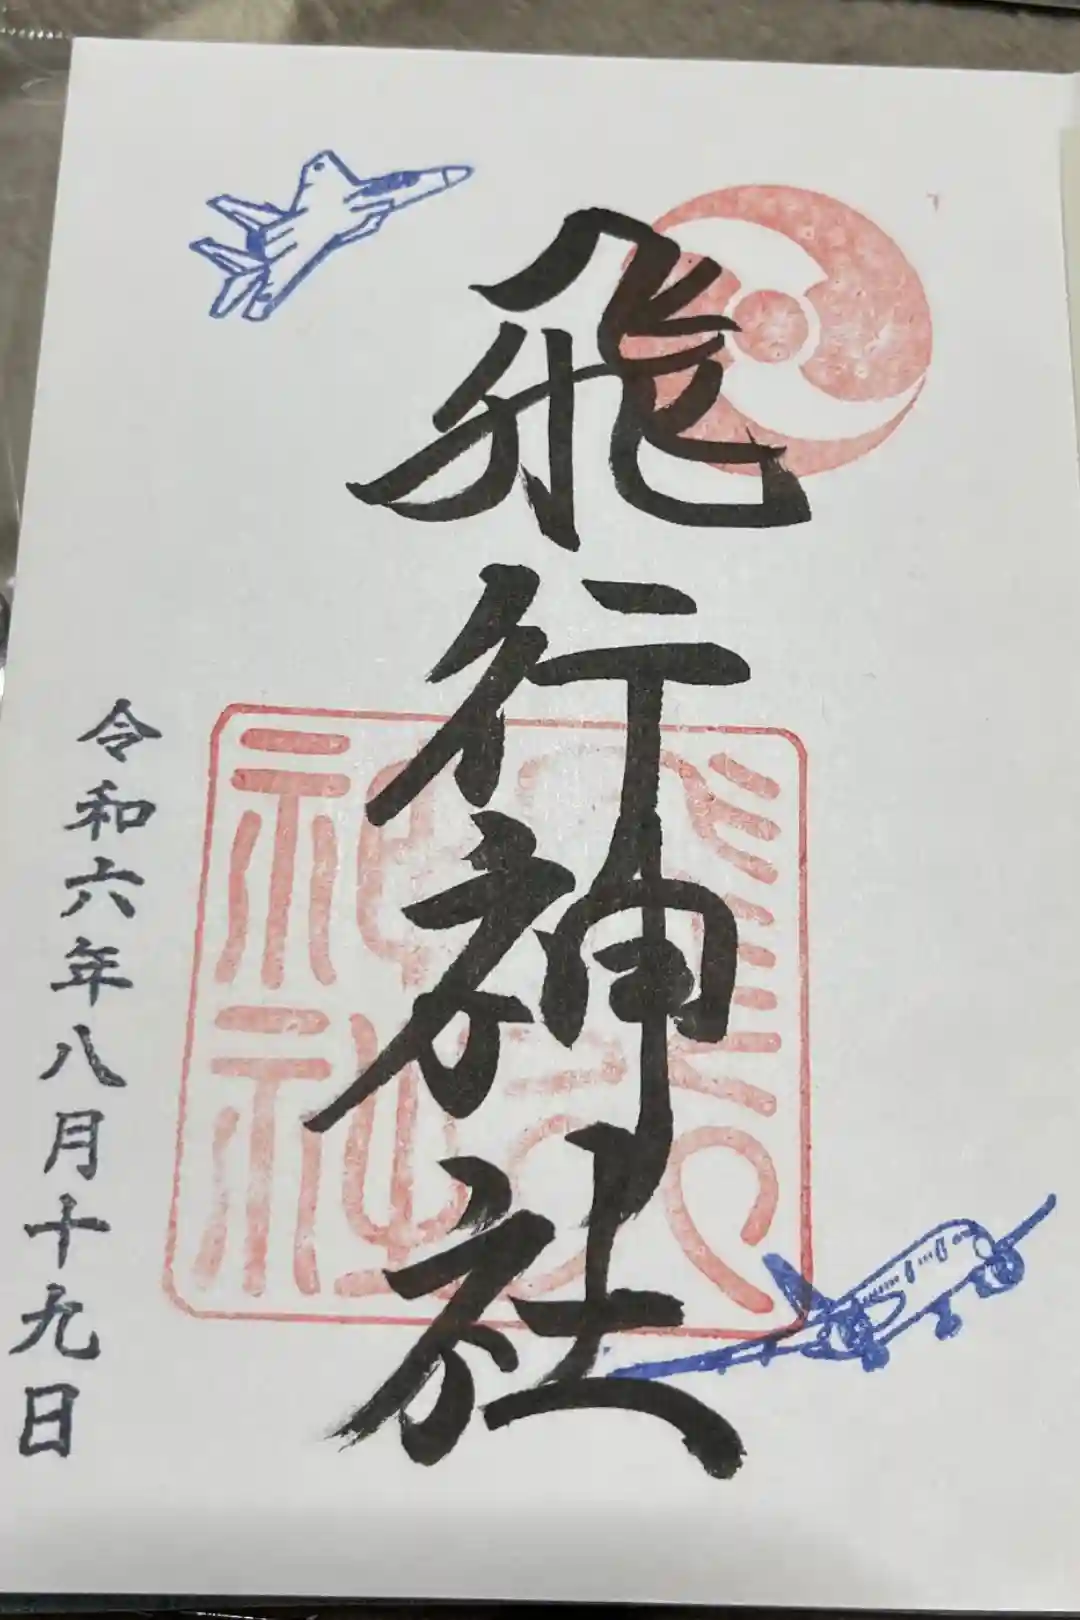 飛行神社
飛行
神社
令和六年八月十九日